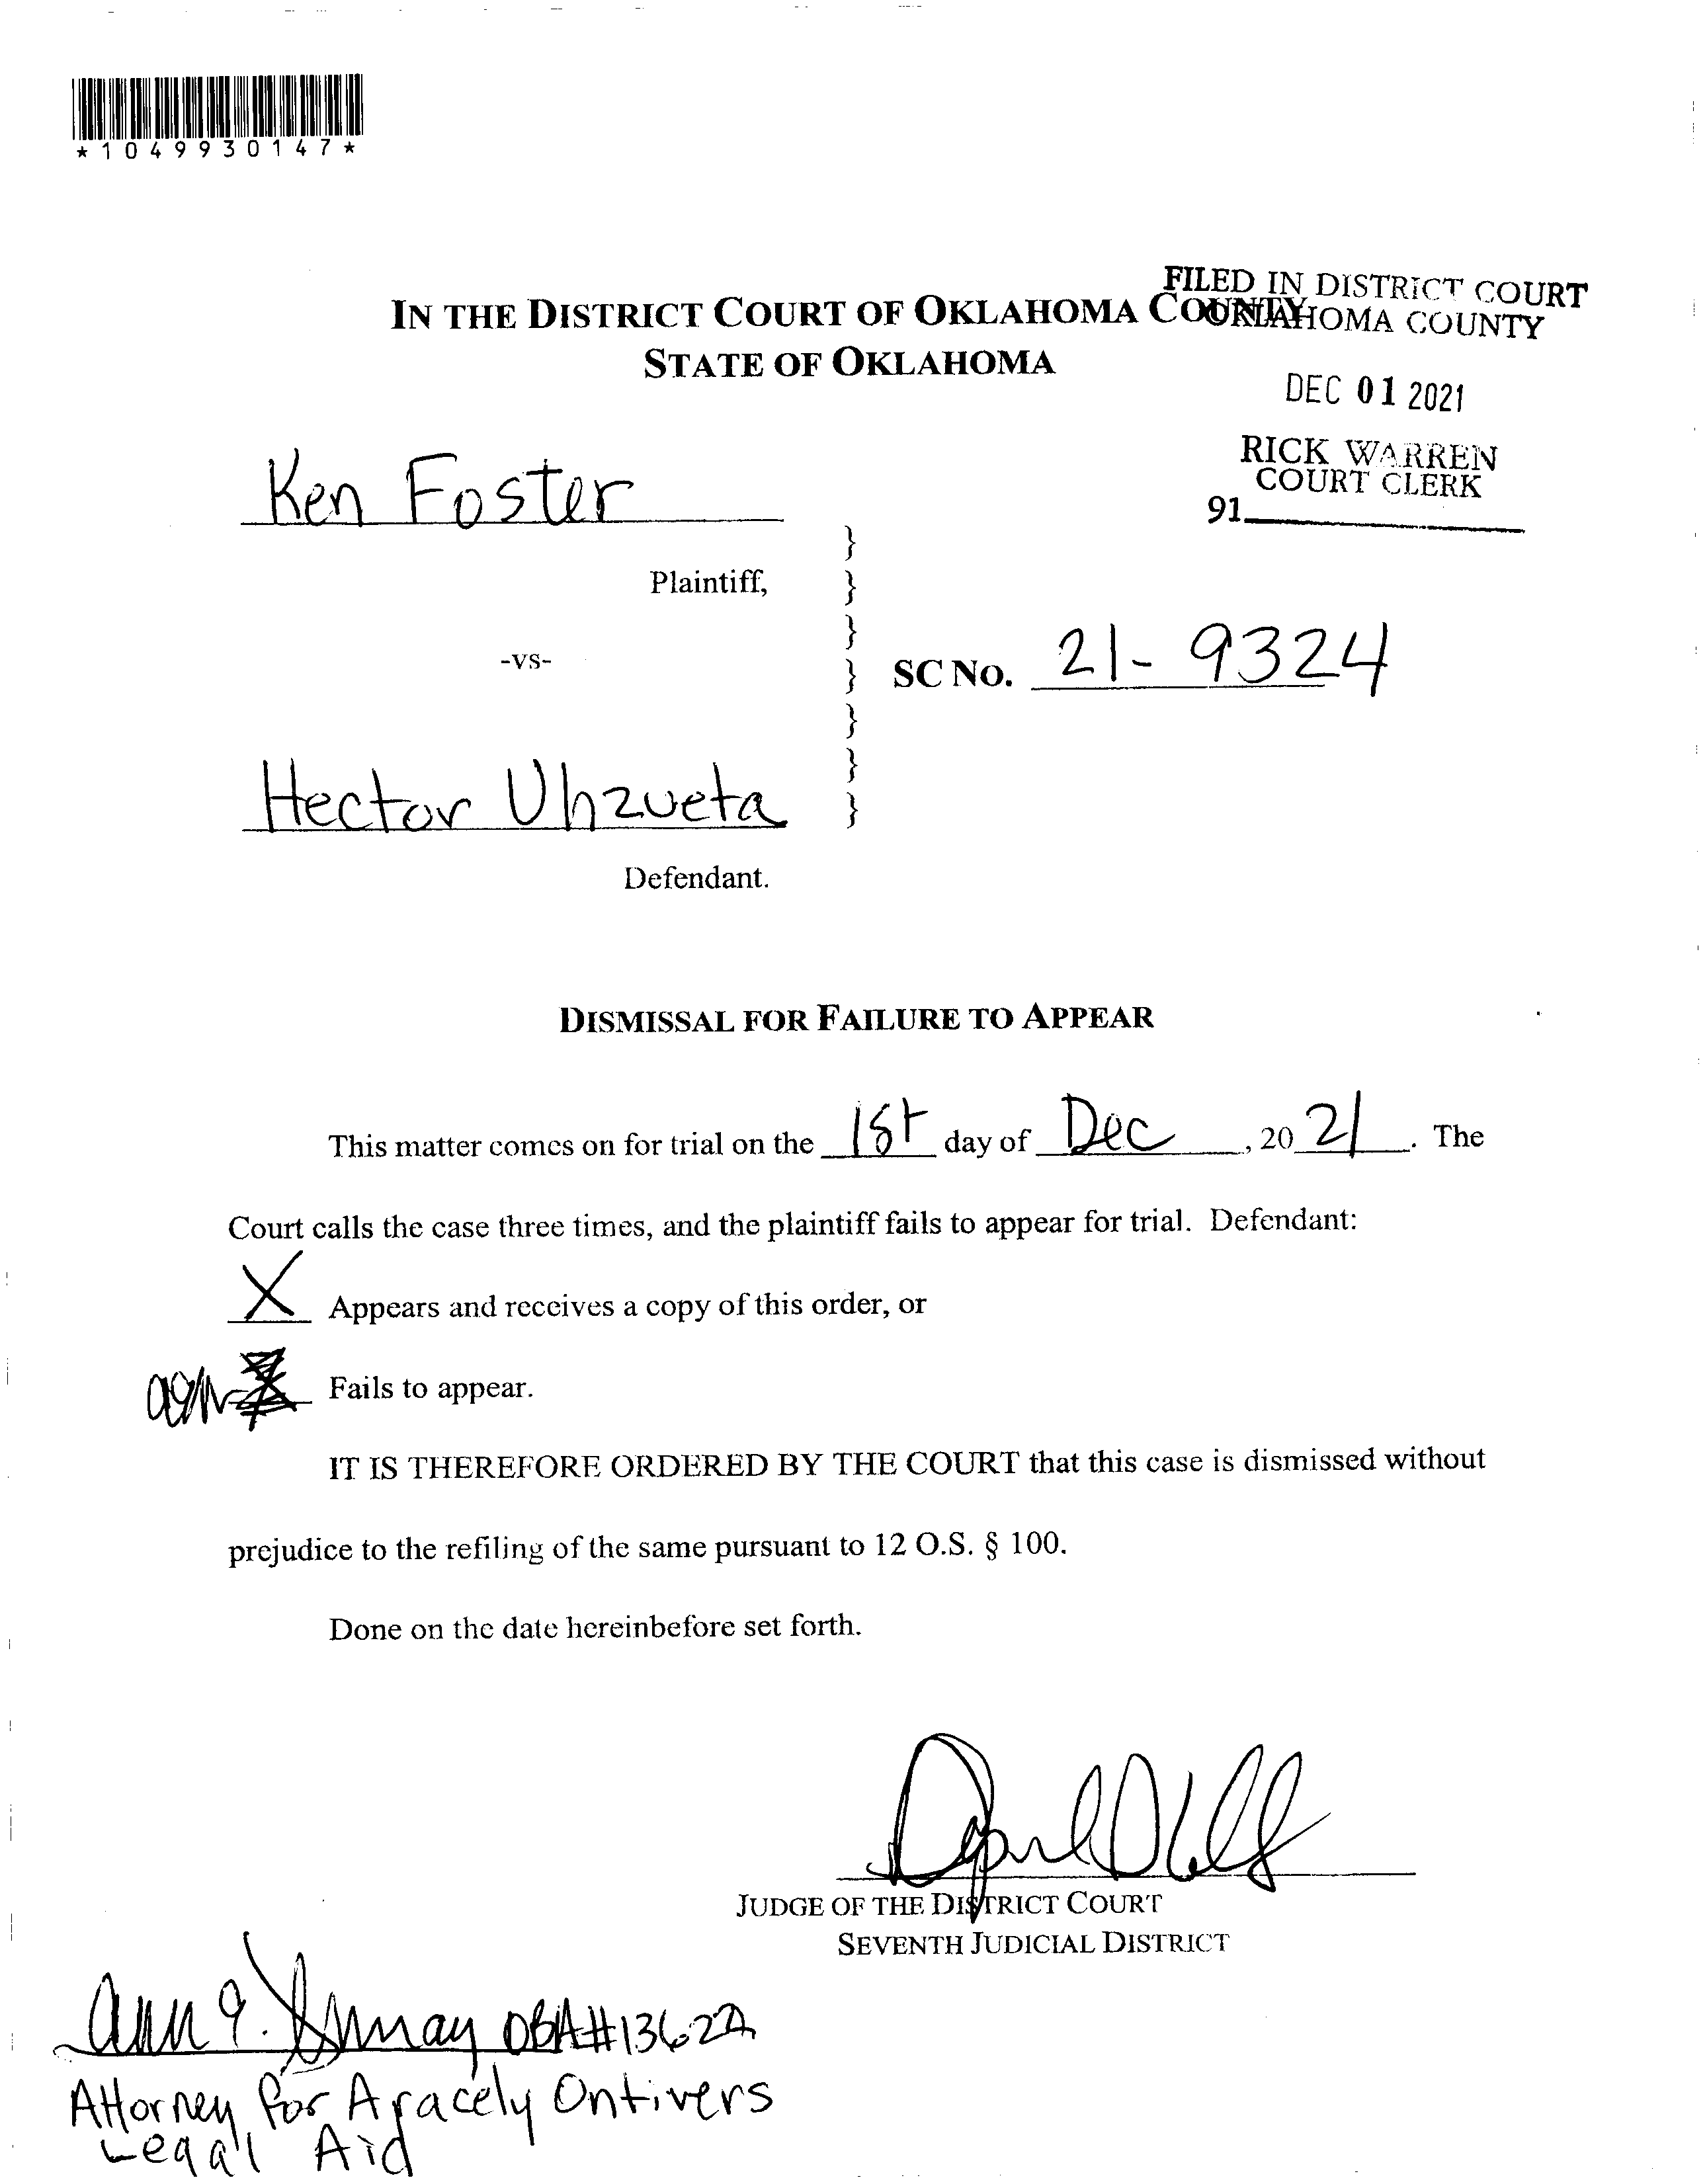 *1049930147*
FILED IN DISTRICT COURT
OKLAHOMA COUNTY
IN THE DISTRICT COURT OF OKLAHOMA COUNTY
STATE OF OKLAHOMA
DEC 01 2021
RICK WARREN
COURT CLERK
91
Ken Foster
Plaintiff,
-vs-
SC No. 21-9324
Hector Uhzueta
Defendant.
DISMISSAL FOR FAILURE TO APPEAR
This matter comes on for trial on the 1st day of Dec, 2021. The
Court calls the case three times, and the plaintiff fails to appear for trial. Defendant:
X Appears and receives a copy of this order, or
Fails to appear.
IT IS THEREFORE ORDERED BY THE COURT that this case is dismissed without
prejudice to the refiling of the same pursuant to 12 O.S. § 100.
Done on the date hereinbefore set forth.
JUDGE OF THE DISTRICT COURT
SEVENTH JUDICIAL DISTRICT
OBA#13622
Attorney for Aracely Ontivers
Legal Aid